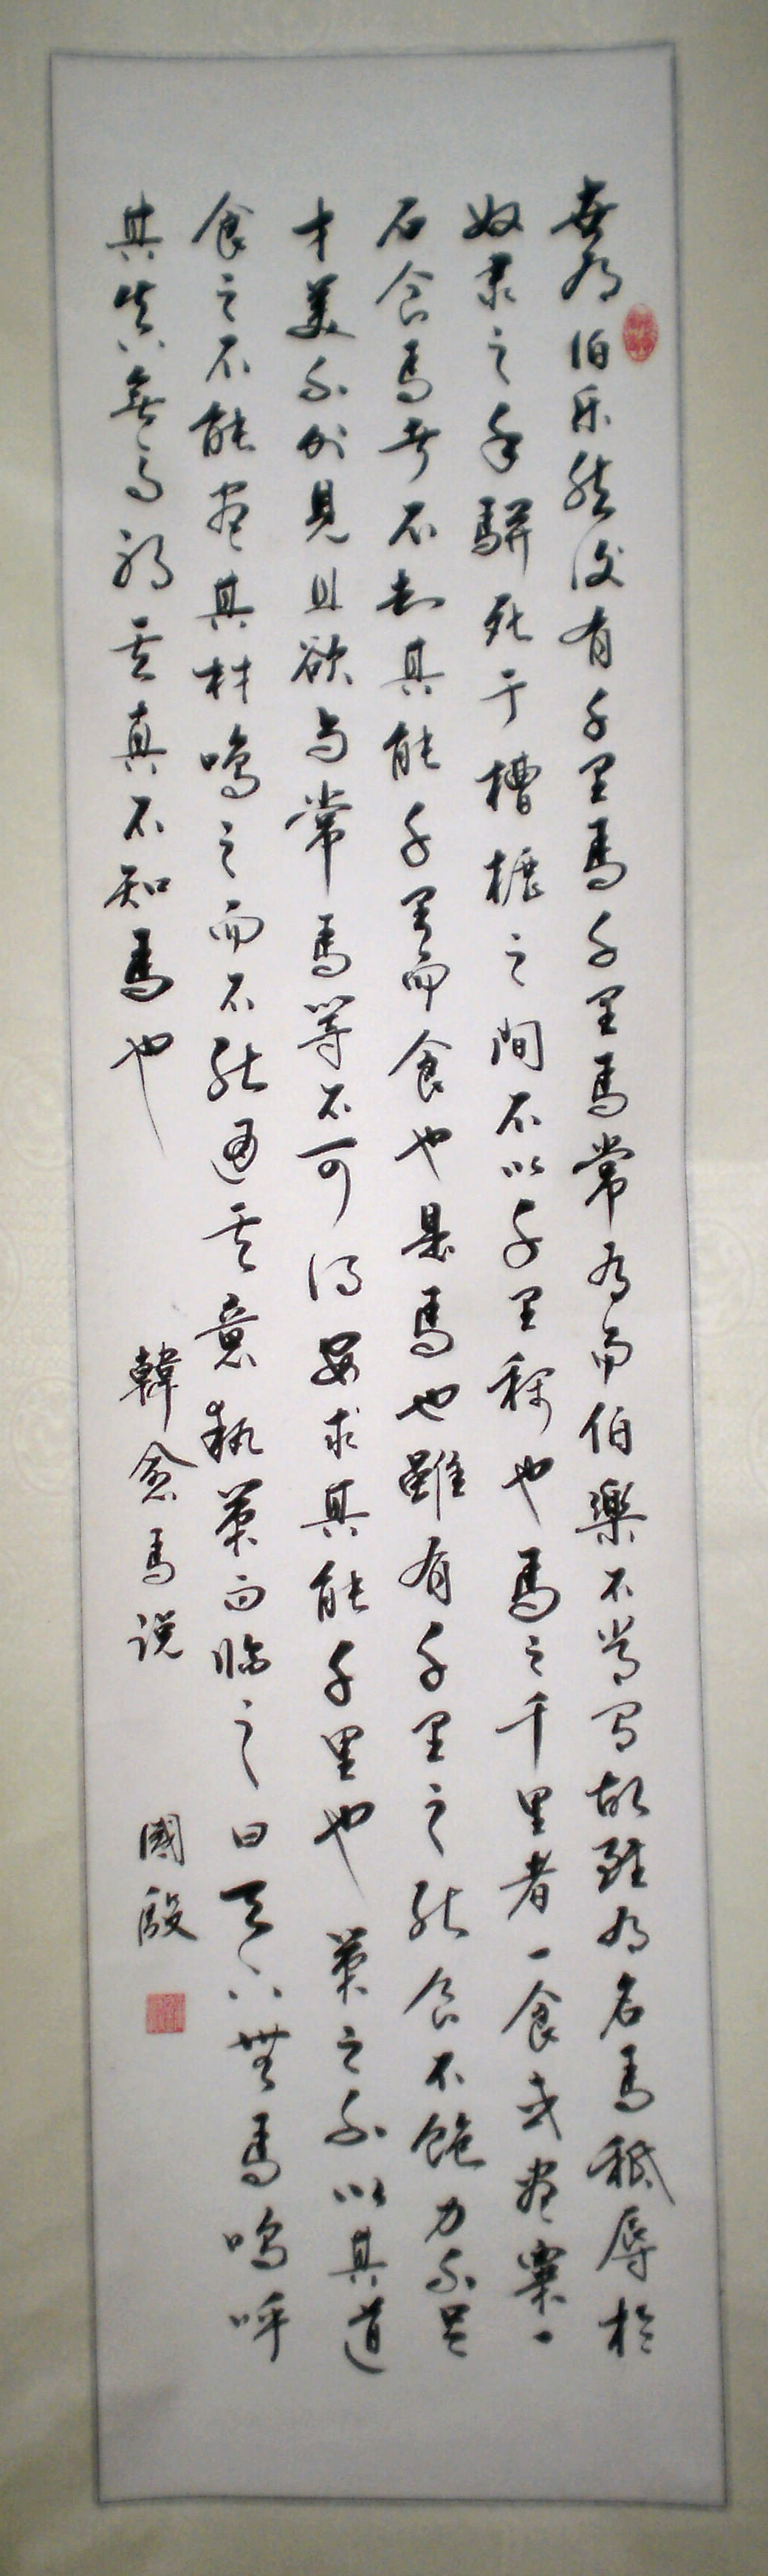 世有伯乐然後有千里馬千里馬常有而伯樂不常有故雖有名馬秖辱於
奴隶之手駢死于槽櫪之間不以千里稱也馬之千里者一食或盡粟一
石食馬者不知其能千里而食也是馬也雖有千里之能食不飽力不足
才美不外見且欲与常馬等不可得安求其能千里也策之不以其道
食之不能盡其材鳴之而不能通其意執策而臨之曰天下無馬嗚呼
其真無馬邪其真不知馬也
韓愈馬说
國殷